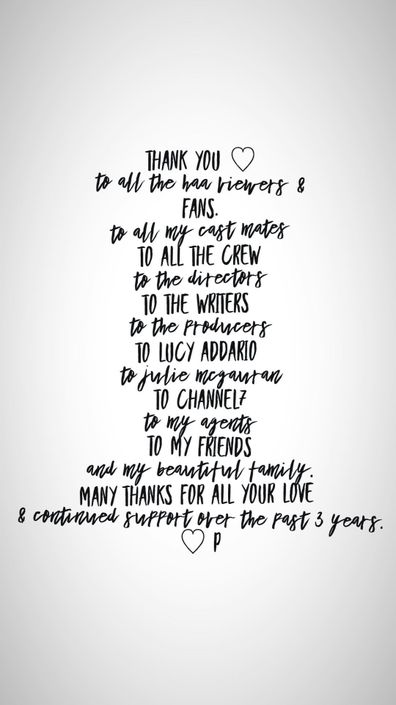 THANK YOU ♡
to all the haa viewers &
FANS.
to all my cast mates
TO ALL THE CREW
to the directors
TO THE WRITERS
to the producers
TO LUCY ADDARIO
to julie mcgauran
TO CHANNEL7
to my agents
TO MY FRIENDS
and my beautiful family.
MANY THANKS FOR ALL YOUR LOVE
& continued support over the past 3 years.
♡ P